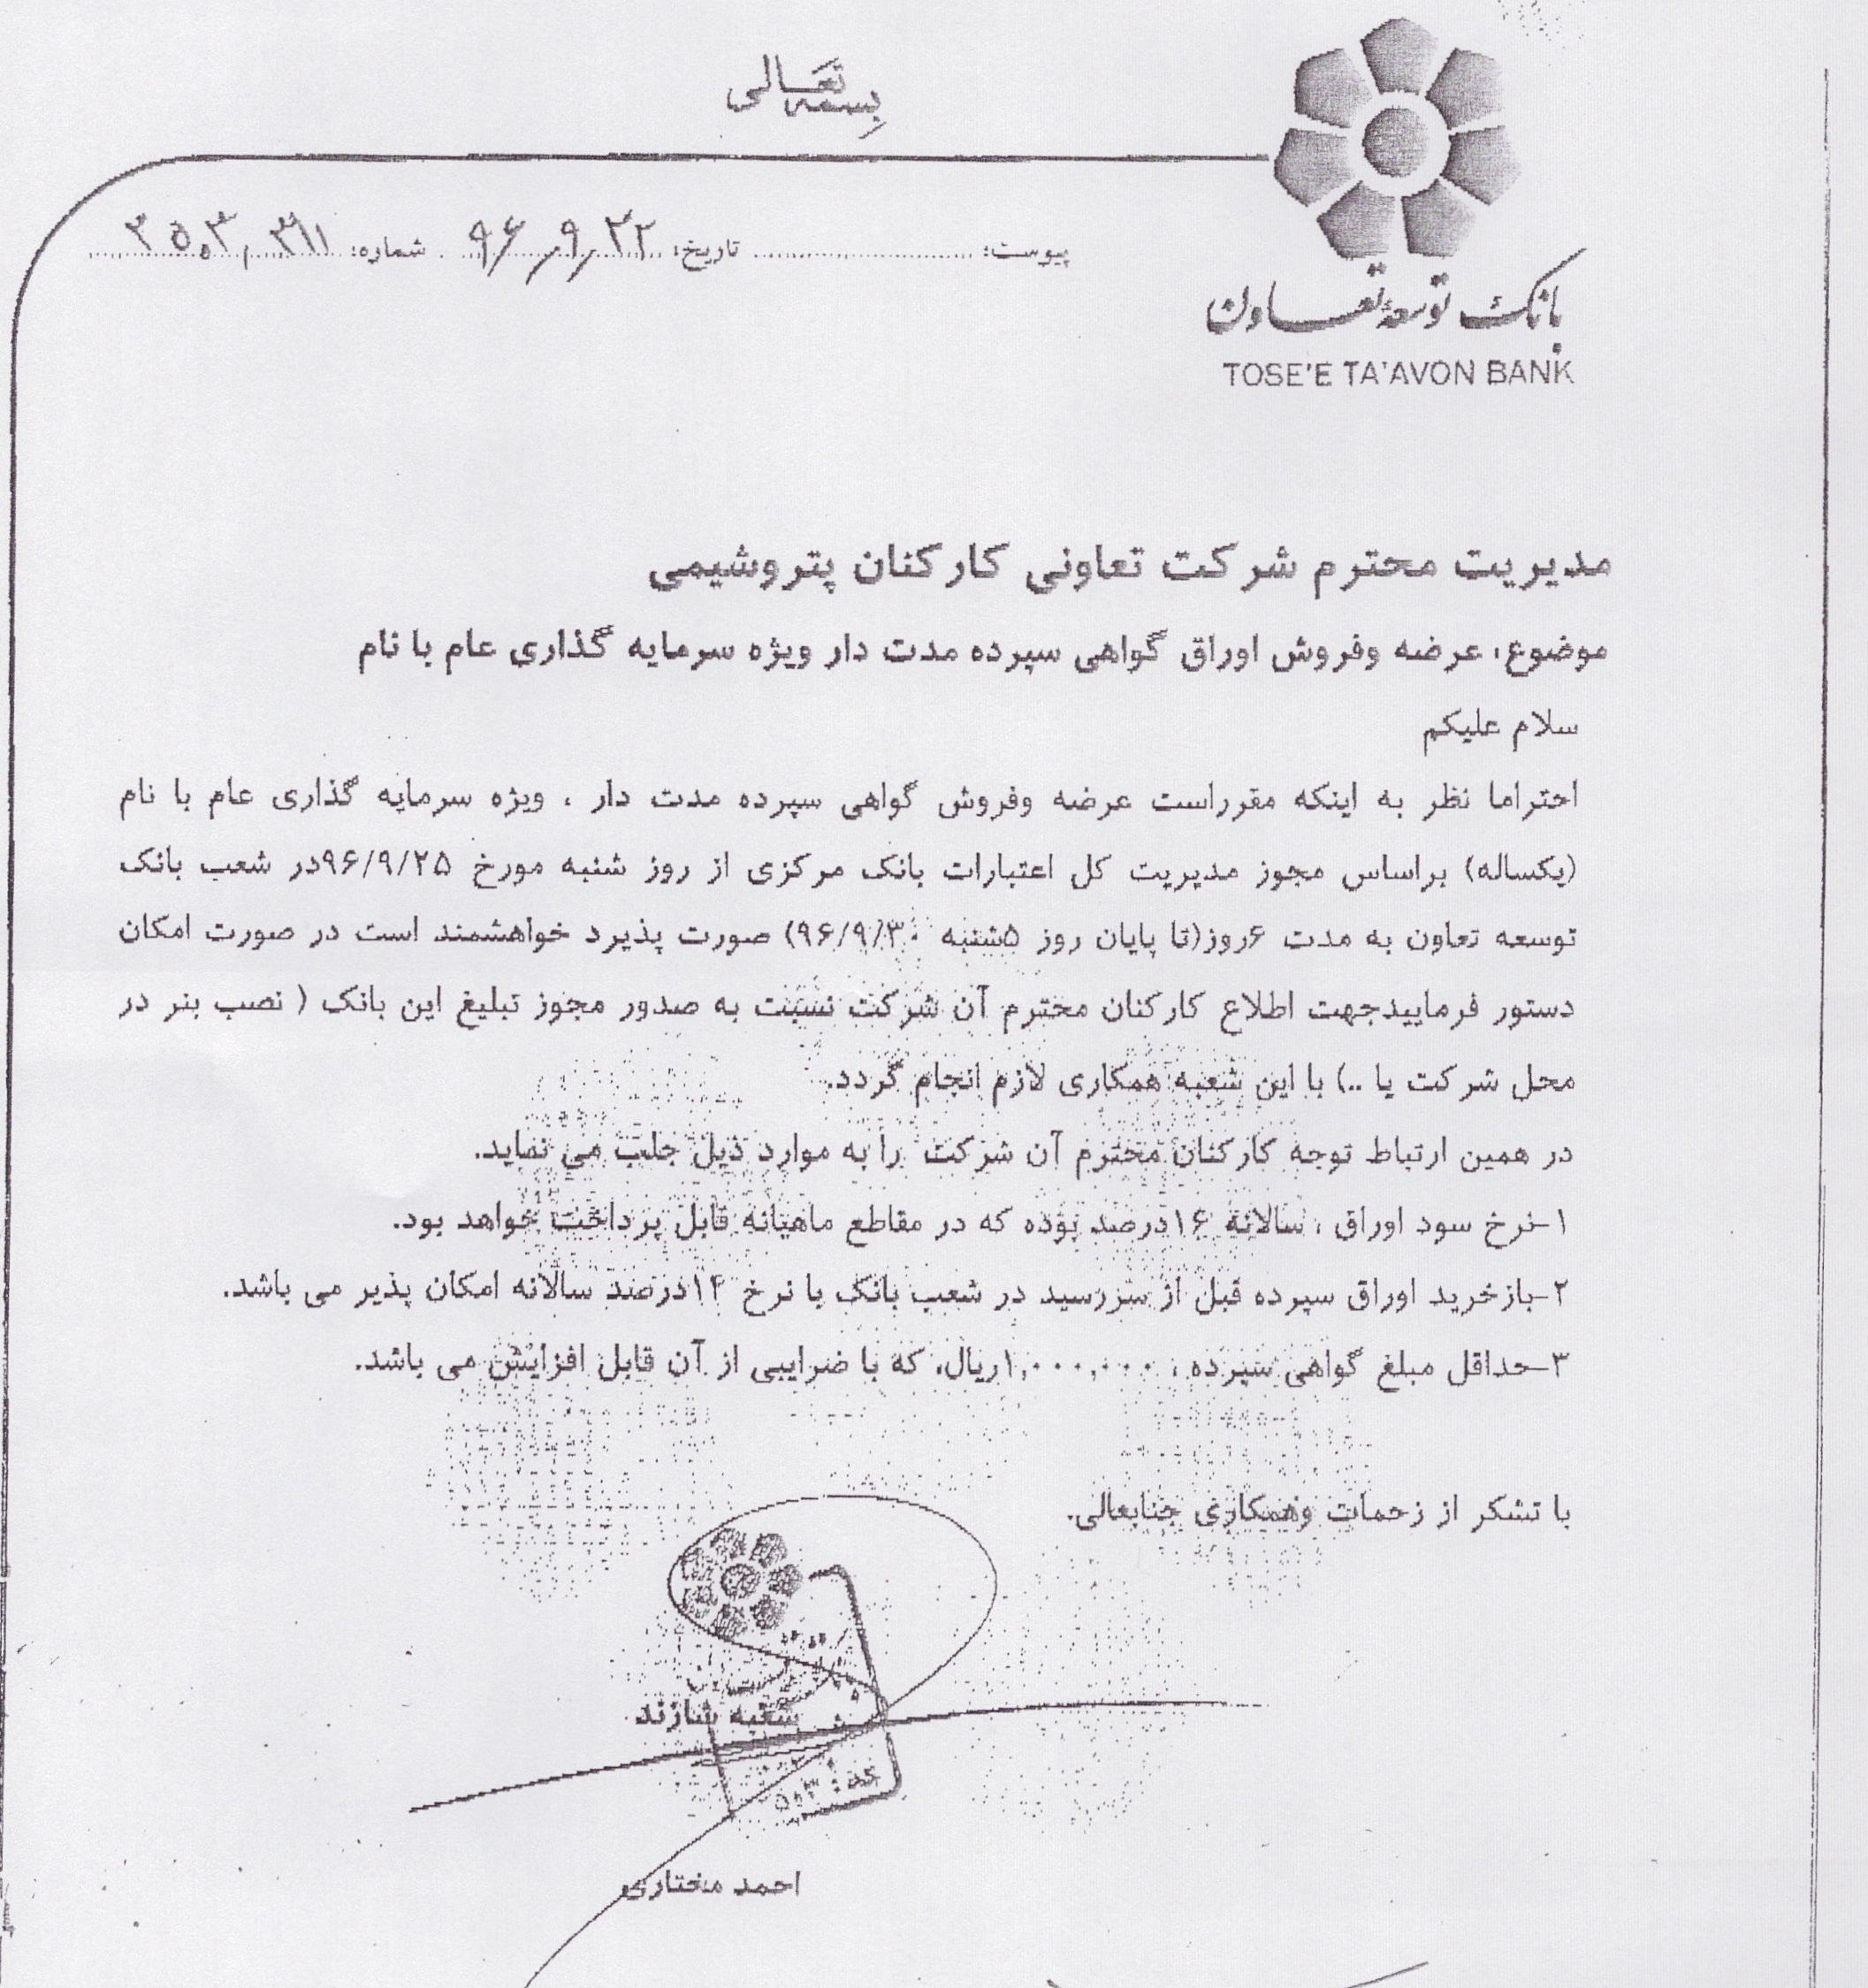 بسمه تعالی
پیوست: تاریخ: ۹۶/۹/۲۲ شماره:
بانک توسعه تعاون
TOSE'E TA'AVON BANK
مدیریت محترم شرکت تعاونی کارکنان پتروشیمی
موضوع: عرضه وفروش اوراق گواهی سپرده مدت دار ویژه سرمایه گذاری عام با نام
سلام علیکم
احتراما نظر به اینکه مقرراست عرضه وفروش گواهی سپرده مدت دار ، ویژه سرمایه گذاری عام با نام
(یکساله) براساس مجوز مدیریت کل اعتبارات بانک مرکزی از روز شنبه مورخ ۹۶/۹/۲۵در شعب بانک
توسعه تعاون به مدت ۶روز(تا پایان روز ۵شنبه ۹۶/۹/۳۰) صورت پذیرد خواهشمند است در صورت امکان
دستور فرماییدجهت اطلاع کارکنان محترم آن شرکت نسبت به صدور مجوز تبلیغ این بانک ( نصب بنر در
محل شرکت یا ..) با این شعبه همکاری لازم انجام گردد.
در همین ارتباط توجه کارکنان محترم آن شرکت را به موارد ذیل جلب می نماید.
۱-نرخ سود اوراق ، سالانه ۱۶درصد بوده که در مقاطع ماهیانه قابل پرداخت خواهد بود.
۲-بازخرید اوراق سپرده قبل از سررسید در شعب بانک با نرخ ۱۴درصد سالانه امکان پذیر می باشد.
۳-حداقل مبلغ گواهی سپرده ، ۱,۰۰۰,۰۰۰ریال، که با ضرایبی از آن قابل افزایش می باشد.
با تشکر از زحمات وهمکاری جنابعالی.
شعبه شازند
کد: ۵۰۳
احمد مختاری